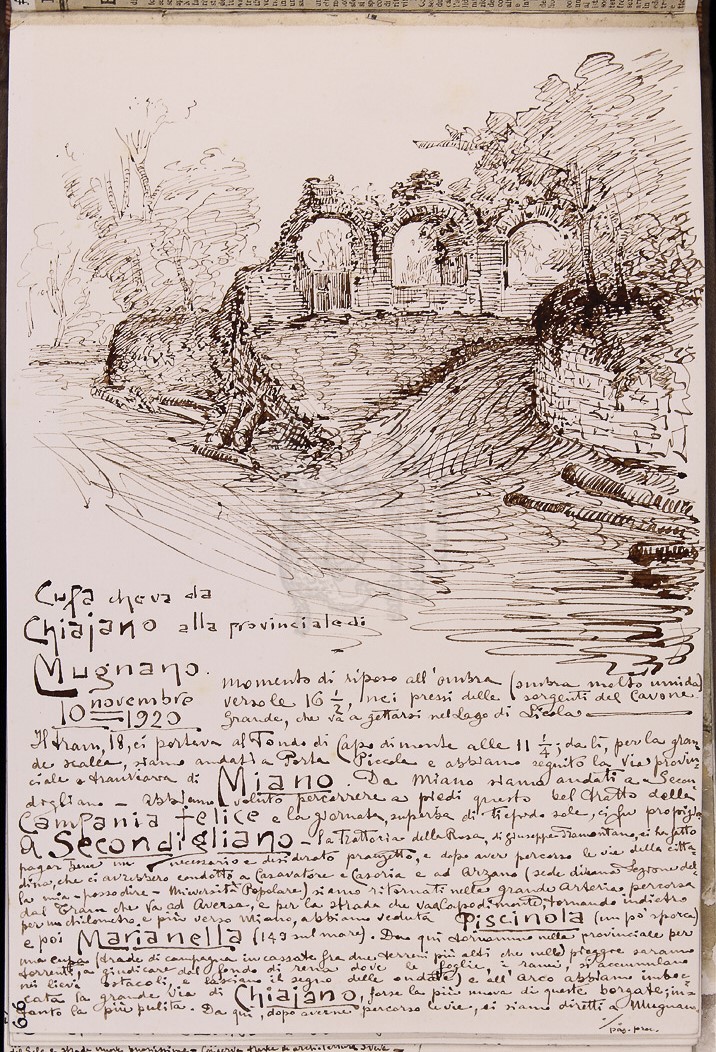 Cupa che va da
Chiajano alla provinciale di
Mugnano.
10 novembre
1920
momento di riposo all'ombra (ombra molto umida)
verso le 16 ½, nei pressi delle sorgenti del Cavone
Grande, che va a gettarsi nel Lago di Licola
Il tram, 18, ci portava al Tondo di Capodimonte alle 11 ¼; da lì, per la gran
de scalea, siamo andati a Porta Piccola e abbiamo seguito la via provin
ciale e tranviaria di Miano. Da Miano siamo andati a Secon
digliano - abbiamo voluto percorrere a piedi questo bel tratto della
Campania felice e la giornata, superba di tiepido sole, ci fu propizia
A Secondigliano - la Trattoria della Rosa, di Giuseppe Tramontano, ci ha fatto
pagar bene un necessario e desiderato pranzetto, e dopo aver percorso le vie della citta
dina, che ci avrebbero condotto a Casavatore e Casoria e ad Arzano (sede di una Sezione del
la mia - posso dire - Università Popolare) siamo ritornati nella grande Arteria percorsa
dal Tram che va ad Aversa, e per la strada che va a Capodimonte, tornando indietro
per un chilometro, e più verso Miano, abbiamo veduta Piscinola (un po' sporca)
e poi Marianella (149 sul mare). Da qui tornammo nella provinciale per
una cupa (strade di campagna incassate fra due terreni più alti che nelle piogge saranno
torrenti, a giudicare dal fondo di rena dove le foglie, i rami, si accumulano
nei lievi ostacoli e lasciano il segno delle ondate) e all'arco abbiamo imboc
cata la grande via di Chiajano, forse la più nuova di queste borgate; in
tanto la più pulita. Da qui, dopo averne percorso le vie, ci siamo diretti a Mugnano
pag. prec.
66